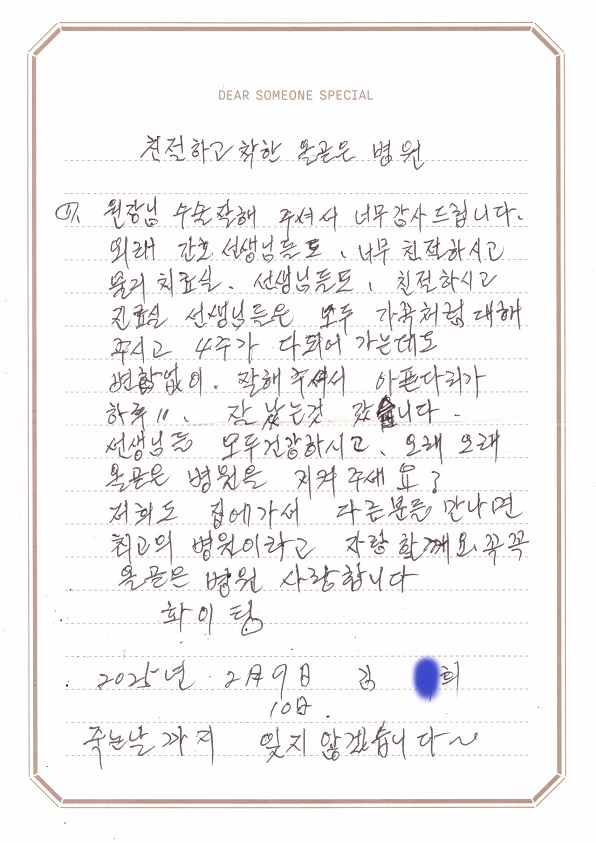 DEAR SOMEONE SPECIAL
친절하고 착한 올곧은 병원
원장님 수술잘해 주셔서 너무감사드립니다.
외래 간호 선생님들도、너무 친절하시고
물리 치료실. 선생님들도、친절하시고
진료실 선생님들은 모두 가족처럼 대해
주시고 4주가 다되어 가는데도
변함없이. 잘해주셔서 아픈다리가
하루〃、잘 낳는것 갔습니다.
선생님들 모두건강하시고、오래 오래
올곧은 병원을 지켜 주세요?
저희도 집에가서 다른분들 만나면
최고의 병원이라고 자랑 할께요. 꼭꼭
올곧은 병원 사랑합니다
화이팅
2025년 2月 9日 김 희
10日.
죽는날 까지 잊지 않겠습니다~